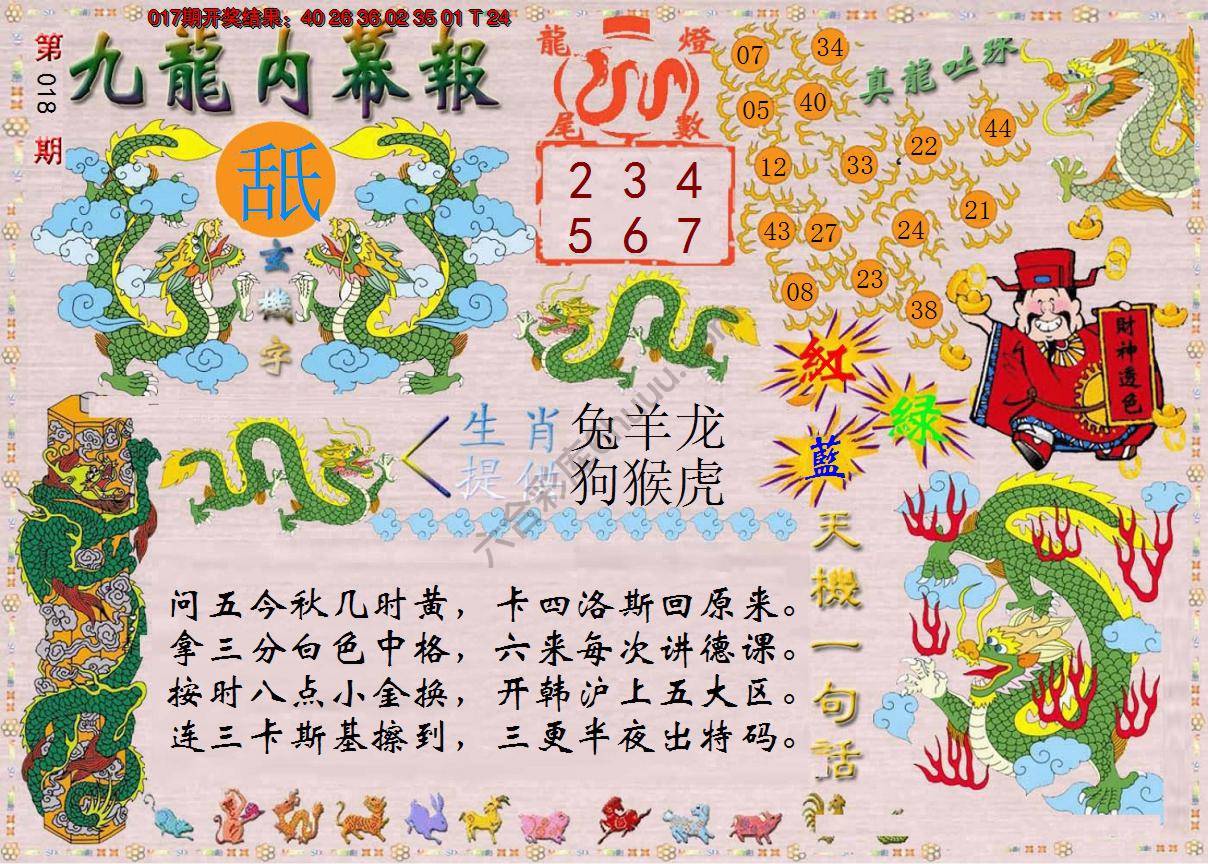 017期开奖结果：40 26 36 02 35 01 T 24
第018期
九龍内幕報
舐
玄機字
龍燈
尾數
2 3 4
5 6 7
真龍吐珠
07
34
05
40
44
22
12
33
21
43
27
24
23
08
38
財神透色
紅
綠
藍
生肖 兔羊龙
提供 狗猴虎
天機一句話
问五今秋几时黄，卡四洛斯回原来。
拿三分白色中格，六来每次讲德课。
按时八点小金换，开韩沪上五大区。
连三卡斯基擦到，三更半夜出特码。